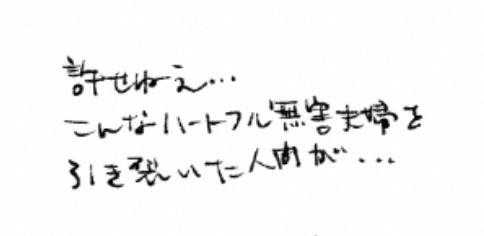 許せねえ…
こんなハートフル無害夫婦を
引き裂いた人間が…